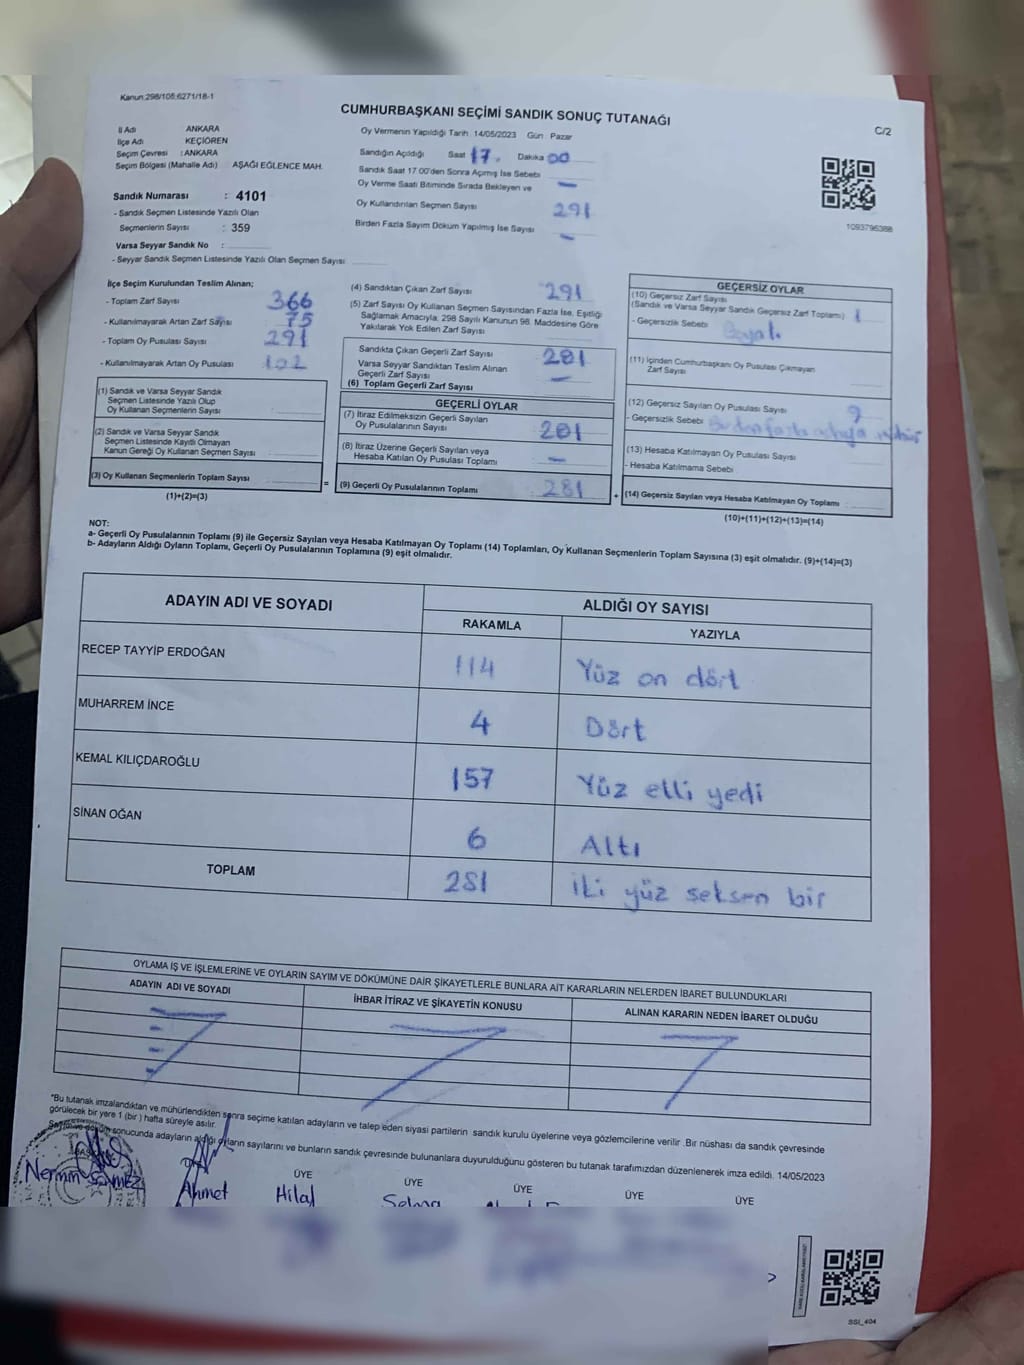 Kanun:298/105;6271/18-1
CUMHURBAŞKANI SEÇİMİ SANDIK SONUÇ TUTANAĞI
C/2
İl Adı ANKARA
İlçe Adı KEÇİÖREN
Seçim Çevresi : ANKARA
Seçim Bölgesi (Mahalle Adı) AŞAĞI EĞLENCE MAH.
Sandık Numarası : 4101
- Sandık Seçmen Listesinde Yazılı Olan
Seçmenlerin Sayısı : 359
Varsa Seyyar Sandık No :
- Seyyar Sandık Seçmen Listesinde Yazılı Olan Seçmen Sayısı :
Oy Vermenin Yapıldığı Tarih 14/05/2023 Gün Pazar
Sandığın Açıldığı Saat 17. Dakika 00
Sandık Saat 17:00'den Sonra Açımış İse Sebebi
Oy Verme Saati Bitiminde Sırada Bekleyen ve
Oy Kullandırılan Seçmen Sayısı 291
Birden Fazla Sayım Döküm Yapılmış İse Sayısı
1093796388
İlçe Seçim Kurulundan Teslim Alınan;
- Toplam Zarf Sayısı 366
- Kullanılmayarak Artan Zarf Sayısı 75
- Toplam Oy Pusulası Sayısı 291
- Kullanılmayarak Artan Oy Pusulası 102
(1) Sandık ve Varsa Seyyar Sandık
Seçmen Listesinde Yazılı Olup
Oy Kullanan Seçmenlerin Sayısı :
(2) Sandık ve Varsa Seyyar Sandık
Seçmen Listesinde Kayıtlı Olmayan
Kanun Gereği Oy Kullanan Seçmen Sayısı :
(3) Oy Kullanan Seçmenlerin Toplam Sayısı :
(1)+(2)=(3)
=
(4) Sandıktan Çıkan Zarf Sayısı 291
(5) Zarf Sayısı Oy Kullanan Seçmen Sayısından Fazla İse, Eşitliği
Sağlamak Amacıyla, 298 Sayılı Kanunun 98. Maddesine Göre
Yakılarak Yok Edilen Zarf Sayısı
Sandıkta Çıkan Geçerli Zarf Sayısı 281
Varsa Seyyar Sandıktan Teslim Alınan
Geçerli Zarf Sayısı
(6) Toplam Geçerli Zarf Sayısı
GEÇERLİ OYLAR
(7) İtiraz Edilmeksizin Geçerli Sayılan
Oy Pusulalarının Sayısı 281
(8) İtiraz Üzerine Geçerli Sayılan veya
Hesaba Katılan Oy Pusulası Toplamı
(9) Geçerli Oy Pusulalarının Toplamı 281
+
GEÇERSİZ OYLAR
(10) Geçersiz Zarf Sayısı
(Sandık ve Varsa Seyyar Sandık Geçersiz Zarf Toplamı) 1
- Geçersizlik Sebebi
(11) İçinden Cumhurbaşkanı Oy Pusulası Çıkmayan
Zarf Sayısı
(12) Geçersiz Sayılan Oy Pusulası Sayısı 9
- Geçersizlik Sebebi Birden fazla
(13) Hesaba Katılmayan Oy Pusulası Sayısı
- Hesaba Katılmama Sebebi
(14) Geçersiz Sayılan veya Hesaba Katılmayan Oy Toplamı :
(10)+(11)+(12)+(13)=(14)
NOT:
a- Geçerli Oy Pusulalarının Toplamı (9) ile Geçersiz Sayılan veya Hesaba Katılmayan Oy Toplamı (14) Toplamları, Oy Kullanan Seçmenlerin Toplam Sayısına (3) eşit olmalıdır. (9)+(14)=(3)
b- Adayların Aldığı Oyların Toplamı, Geçerli Oy Pusulalarının Toplamına (9) eşit olmalıdır.
ADAYIN ADI VE SOYADI
ALDIĞI OY SAYISI
RAKAMLA YAZIYLA
RECEP TAYYİP ERDOĞAN 114 Yüz on dört
MUHARREM İNCE 4 Dört
KEMAL KILIÇDAROĞLU 157 Yüz elli yedi
SİNAN OĞAN 6 Altı
TOPLAM 281 İki yüz seksen bir
OYLAMA İŞ VE İŞLEMLERİNE VE OYLARIN SAYIM VE DÖKÜMÜNE DAİR ŞİKAYETLERLE BUNLARA AİT KARARLARIN NELERDEN İBARET BULUNDUKLARI
ADAYIN ADI VE SOYADI İHBAR İTİRAZ VE ŞİKAYETİN KONUSU ALINAN KARARIN NEDEN İBARET OLDUĞU
*Bu tutanak imzalandıktan ve mühürlendikten sonra seçime katılan adayların ve talep eden siyasi partilerin sandık kurulu üyelerine veya gözlemcilerine verilir. Bir nüshası da sandık çevresinde
görülecek bir yere 1 (bir) hafta süreyle asılır.
sonucunda adayların aldığı oyların sayılarını ve bunların sandık çevresinde bulunanlara duyurulduğunu gösteren bu tutanak tarafımızdan düzenlenerek imza edildi. 14/05/2023
ÜYE ÜYE ÜYE ÜYE ÜYE
Ahmet Hilal Selma
SSI_404